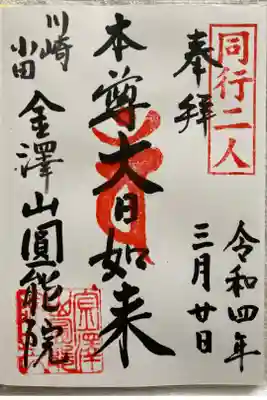 同行二人
奉拝
令和四年
三月廿日
本尊大日如来
川崎
小田
金澤山圓能院